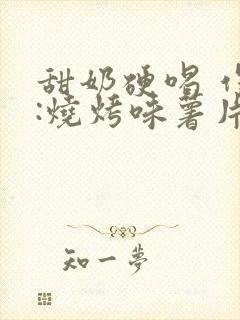 甜奶硬唱
:燒烤味薯片
知一夢